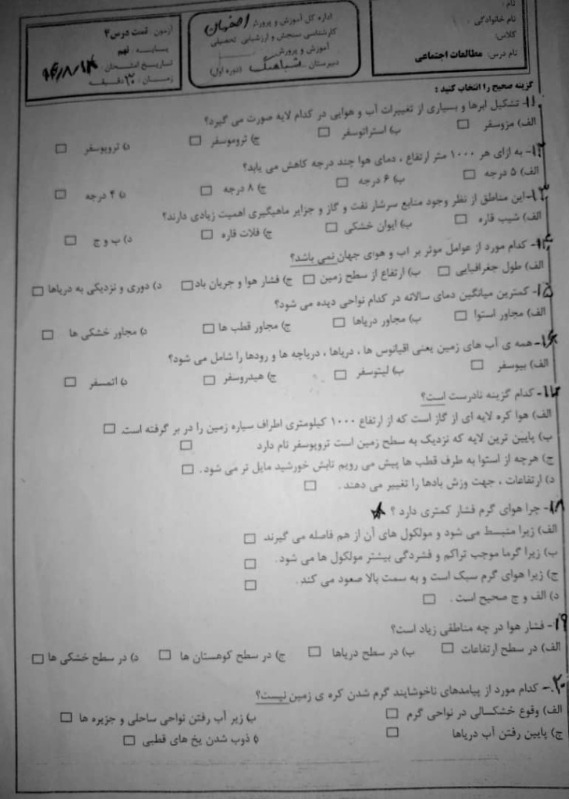 نام :
نام خانوادگی :
کلاس:
نام درس: مطالعات اجتماعی
اداره کل آموزش و پرورش اصفهان
کارشناسی سنجش و ارزشیابی تحصیلی
آموزش و پرورش
دبیرستان (دوره اول)
آزمون: تست درس ۴
پایه: نهم
تاریخ امتحان:
زمان: ۲۰ دقیقه
گزینه صحیح را انتخاب کنید :
۱۱- تشکیل ابرها و بسیاری از تغییرات آب و هوایی در کدام لایه صورت می گیرد؟
الف) مزوسفر □ ب) استراتوسفر □ ج) تروموسفر □ د) تروپوسفر □
۱۲- به ازای هر ۱۰۰۰ متر ارتفاع ، دمای هوا چند درجه کاهش می یابد؟
الف) ۵ درجه □ ب) ۶ درجه □ ج) ۸ درجه □ د) ۴ درجه □
۱۳- این مناطق از نظر وجود منابع سرشار نفت و گاز و جزایر ماهیگیری اهمیت زیادی دارند؟
الف) شیب قاره □ ب) ایوان خشکی □ ج) فلات قاره □ د) ب و ج □
۱۴- کدام مورد از عوامل موثر بر آب و هوای جهان نمی باشد؟
الف) طول جغرافیایی □ ب) ارتفاع از سطح زمین □ ج) فشار هوا و جریان باد □ د) دوری و نزدیکی به دریاها □
۱۵- کمترین میانگین دمای سالانه در کدام نواحی دیده می شود؟
الف) مجاور استوا □ ب) مجاور دریاها □ ج) مجاور قطب ها □ د) مجاور خشکی ها □
۱۶- همه ی آب های زمین یعنی اقیانوس ها ، دریاها ، دریاچه ها و رودها را شامل می شود؟
الف) بیوسفر □ ب) لیتوسفر □ ج) هیدروسفر □ د) اتمسفر □
۱۷- کدام گزینه نادرست است؟
الف) هوا کره لایه ای از گاز است که از ارتفاع ۱۰۰۰ کیلومتری اطراف سیاره زمین را در بر گرفته است. □
ب) پایین ترین لایه که نزدیک به سطح زمین است تروپوسفر نام دارد □
ج) هرچه از استوا به طرف قطب ها پیش می رویم تابش خورشید مایل تر می شود . □
د) ارتفاعات ، جهت وزش بادها را تغییر می دهند . □
۱۸- چرا هوای گرم فشار کمتری دارد ؟ ☆
الف) زیرا منبسط می شود و مولکول های آن از هم فاصله می گیرند □
ب) زیرا گرما موجب تراکم و فشردگی بیشتر مولکول ها می شود . □
ج) زیرا هوای گرم سبک است و به سمت بالا صعود می کند . □
د) الف و ج صحیح است . □
۱۹- فشار هوا در چه مناطقی زیاد است؟
الف) در سطح ارتفاعات □ ب) در سطح دریاها □ ج) در سطح کوهستان ها □ د) در سطح خشکی ها □
۲۰- کدام مورد از پیامدهای ناخوشایند گرم شدن کره ی زمین نیست؟
الف) وقوع خشکسالی در نواحی گرم □ ب) زیر آب رفتن نواحی ساحلی و جزیره ها □
ج) پایین رفتن آب دریاها □ د) ذوب شدن یخ های قطبی □